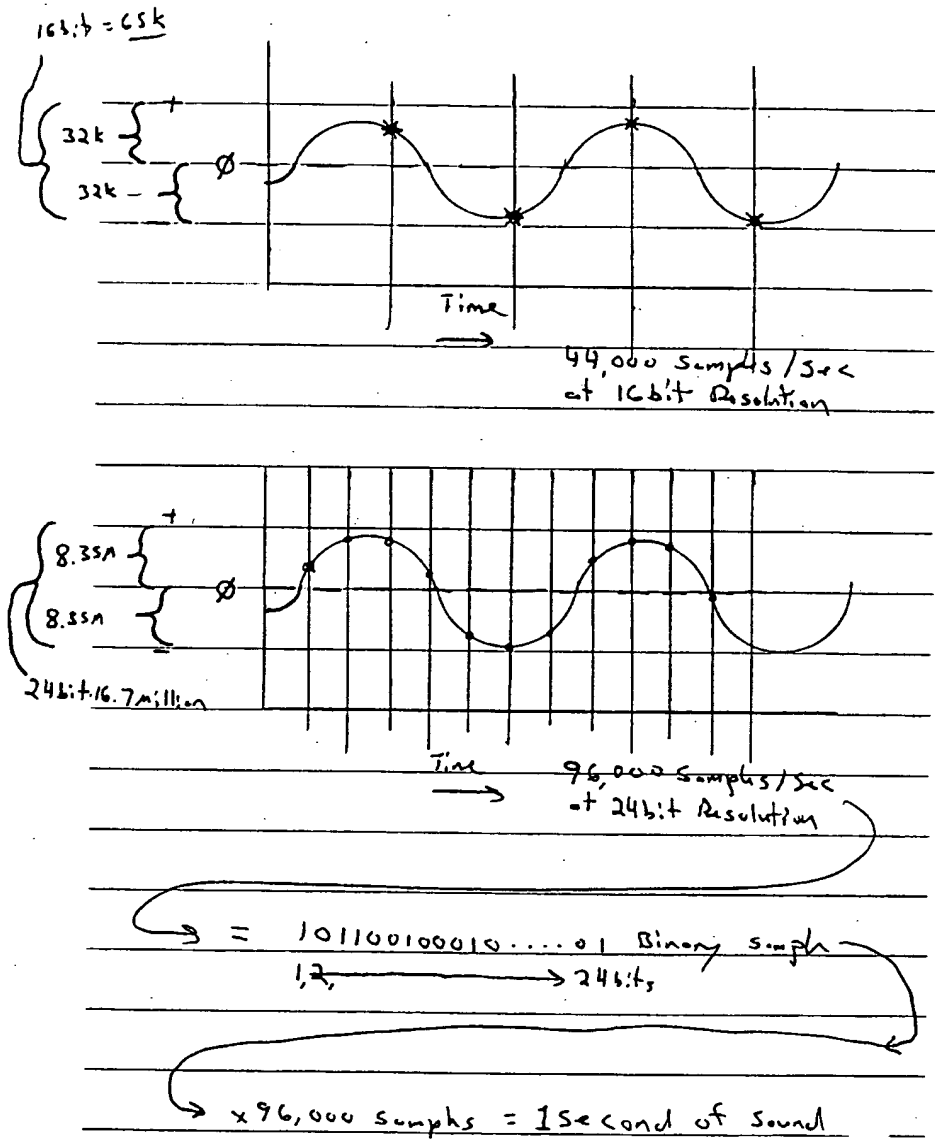 16bit = 65k
+
32k
Ø
32k -
Time
44,000 Samples/Sec
at 16bit Resolution
+
8.35M
Ø
8.35M
-
24bit.16.7 million
Time
96,000 Samples/Sec
at 24bit Resolution
= 101100100010....01 Binary sample
1,2, 24bits
x 96,000 samples = 1 Second of Sound